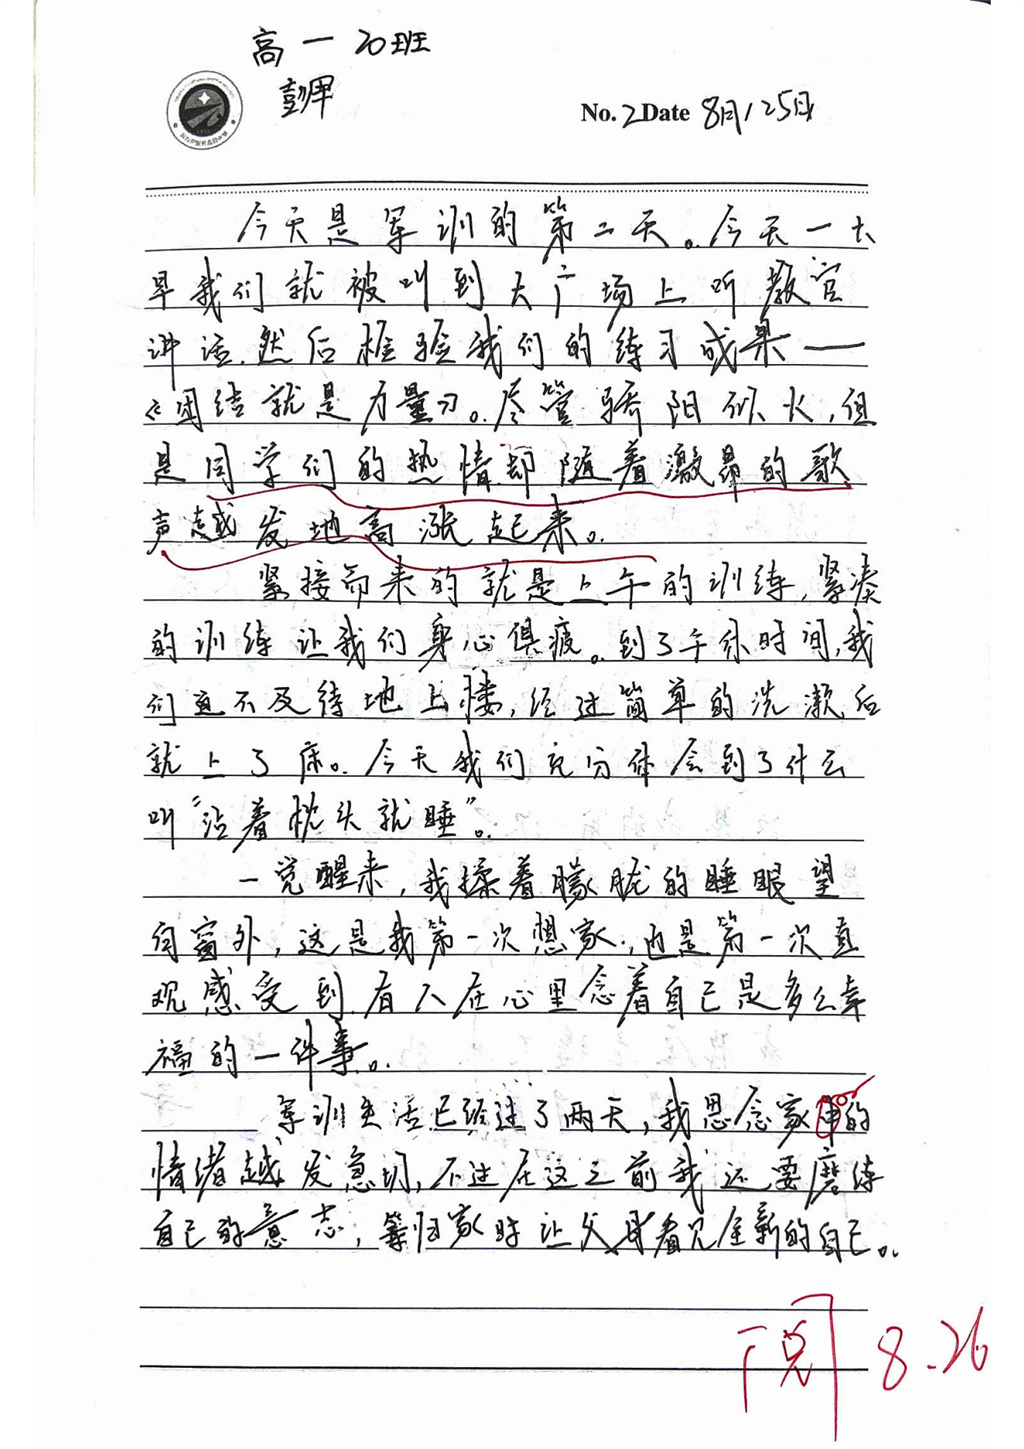 高一20班
彭甲
No.2Date 8月25日
今天是军训的第二天。今天一大
早我们就被叫到大广场上听教官
讲话,然后检验我们的练习成果——
《团结就是力量》。尽管骄阳似火,但
是同学们的热情却随着激昂的歌
声越发地高涨起来。
紧接而来的就是上午的训练,紧凑
的训练让我们身心俱疲。到了午休时间,我
们迫不及待地上楼,经过简单的洗漱后
就上了床。今天我们充分体会到了什么
叫“沾着枕头就睡”。
一觉醒来,我揉着朦胧的睡眼望
向窗外,这是我第一次想家,也是第一次直
观感受到有人在心里念着自己是多么幸
福的一件事。
军训生活已经过了两天,我思念家中的
情绪越发急切,不过在这之前我还要磨练
自己的意志,等归家时让父母看见全新的自己。
阅 8.26